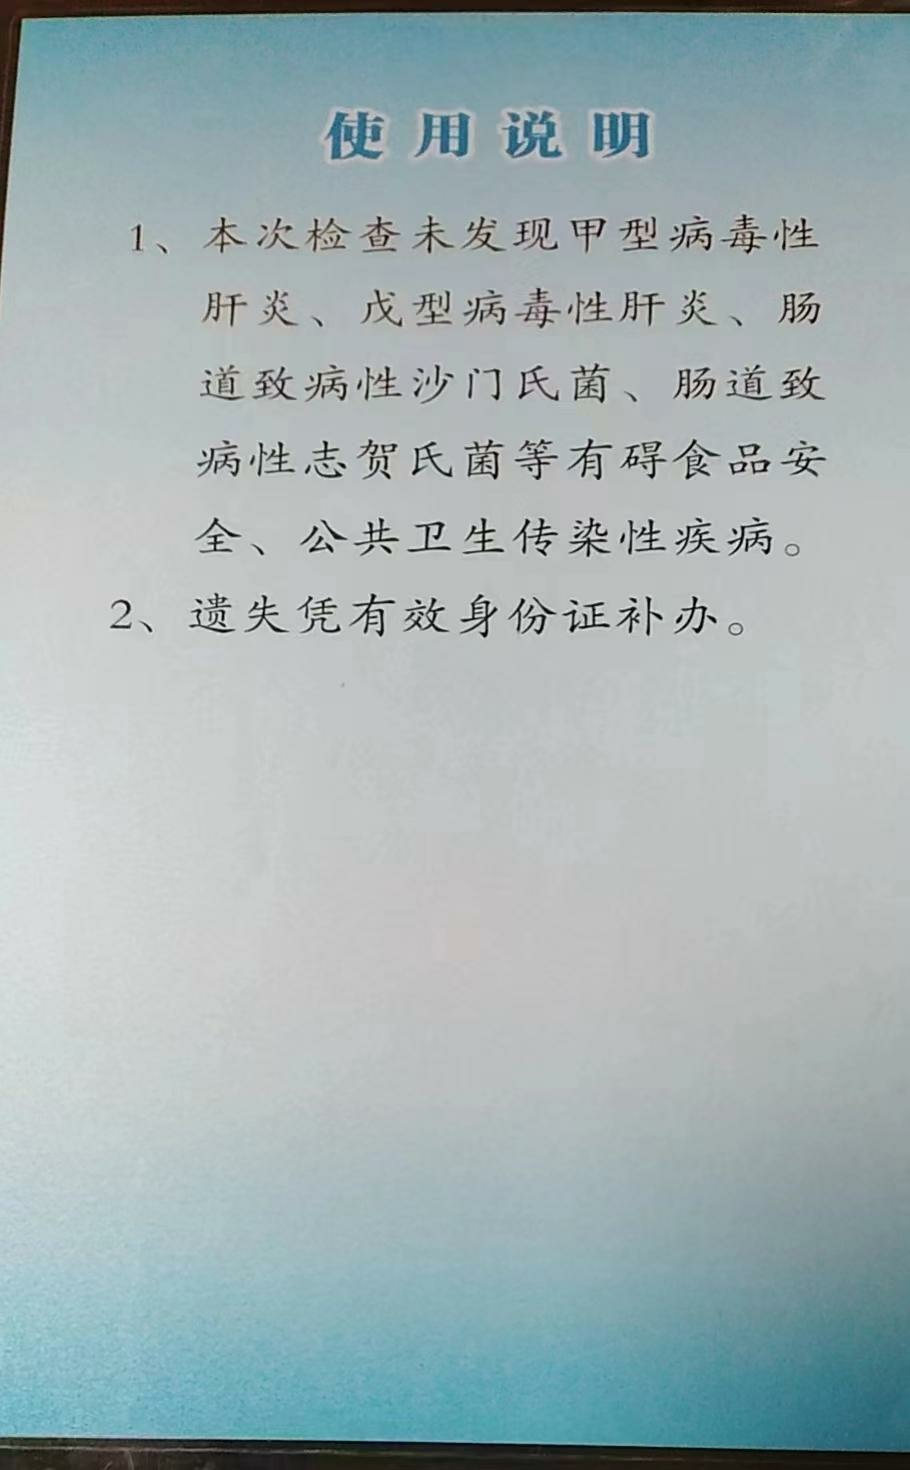 使用说明
1、本次检查未发现甲型病毒性
肝炎、戊型病毒性肝炎、肠
道致病性沙门氏菌、肠道致
病性志贺氏菌等有碍食品安
全、公共卫生传染性疾病。
2、遗失凭有效身份证补办。